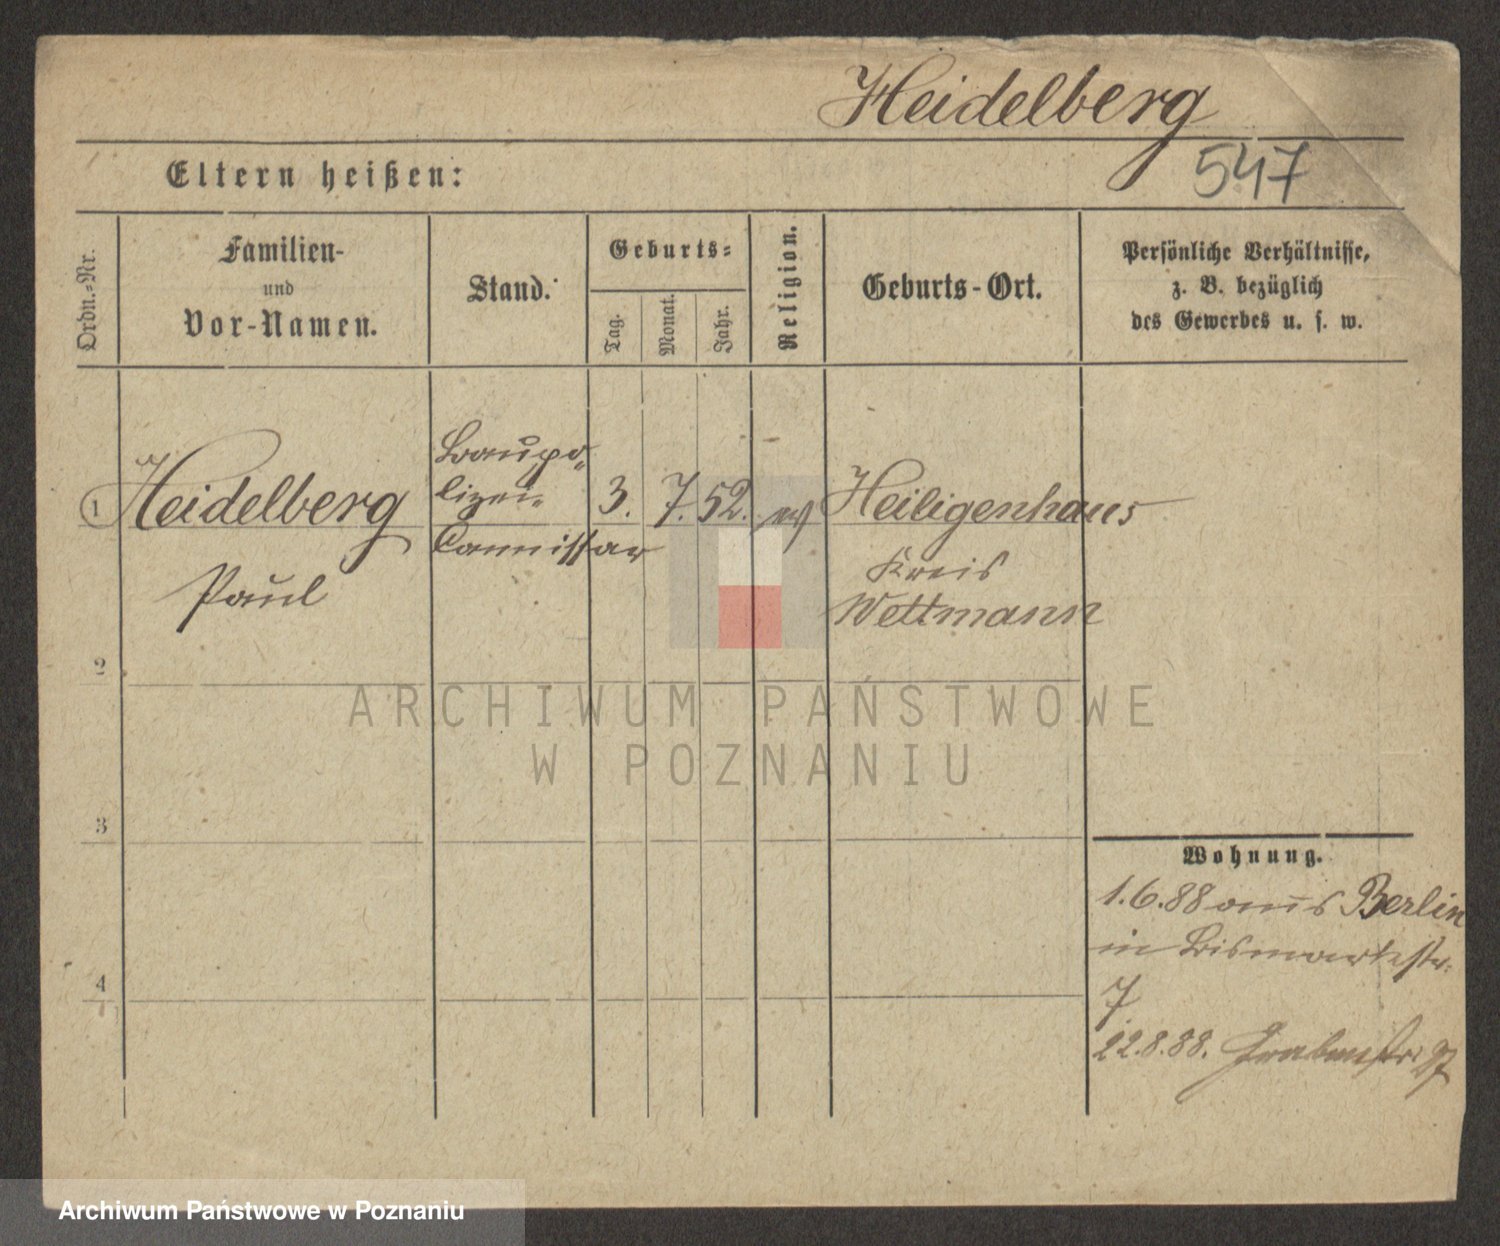 Heidelberg
547
Eltern heißen:
Ordn.-Nr.
Familien-
und
Vor-Namen.
Stand.
Geburts-
Tag.
Monat.
Jahr.
Religion.
Geburts-Ort.
Persönliche Verhältnisse,
z. B. bezüglich
des Gewerbes u. s. w.
1
Heidelberg
Paul
Baupo-
lizei-
Commissar
3.
7.
52.
ev
Heiligenhaus
Kreis
Mettmann
2
3
4
Wohnung.
1.6.88 aus Berlin
in Bismarkstr.
7
22.8.88. Grabenstr.
ARCHIWUM PAŃSTWOWE
W POZNANIU
Archiwum Państwowe w Poznaniu